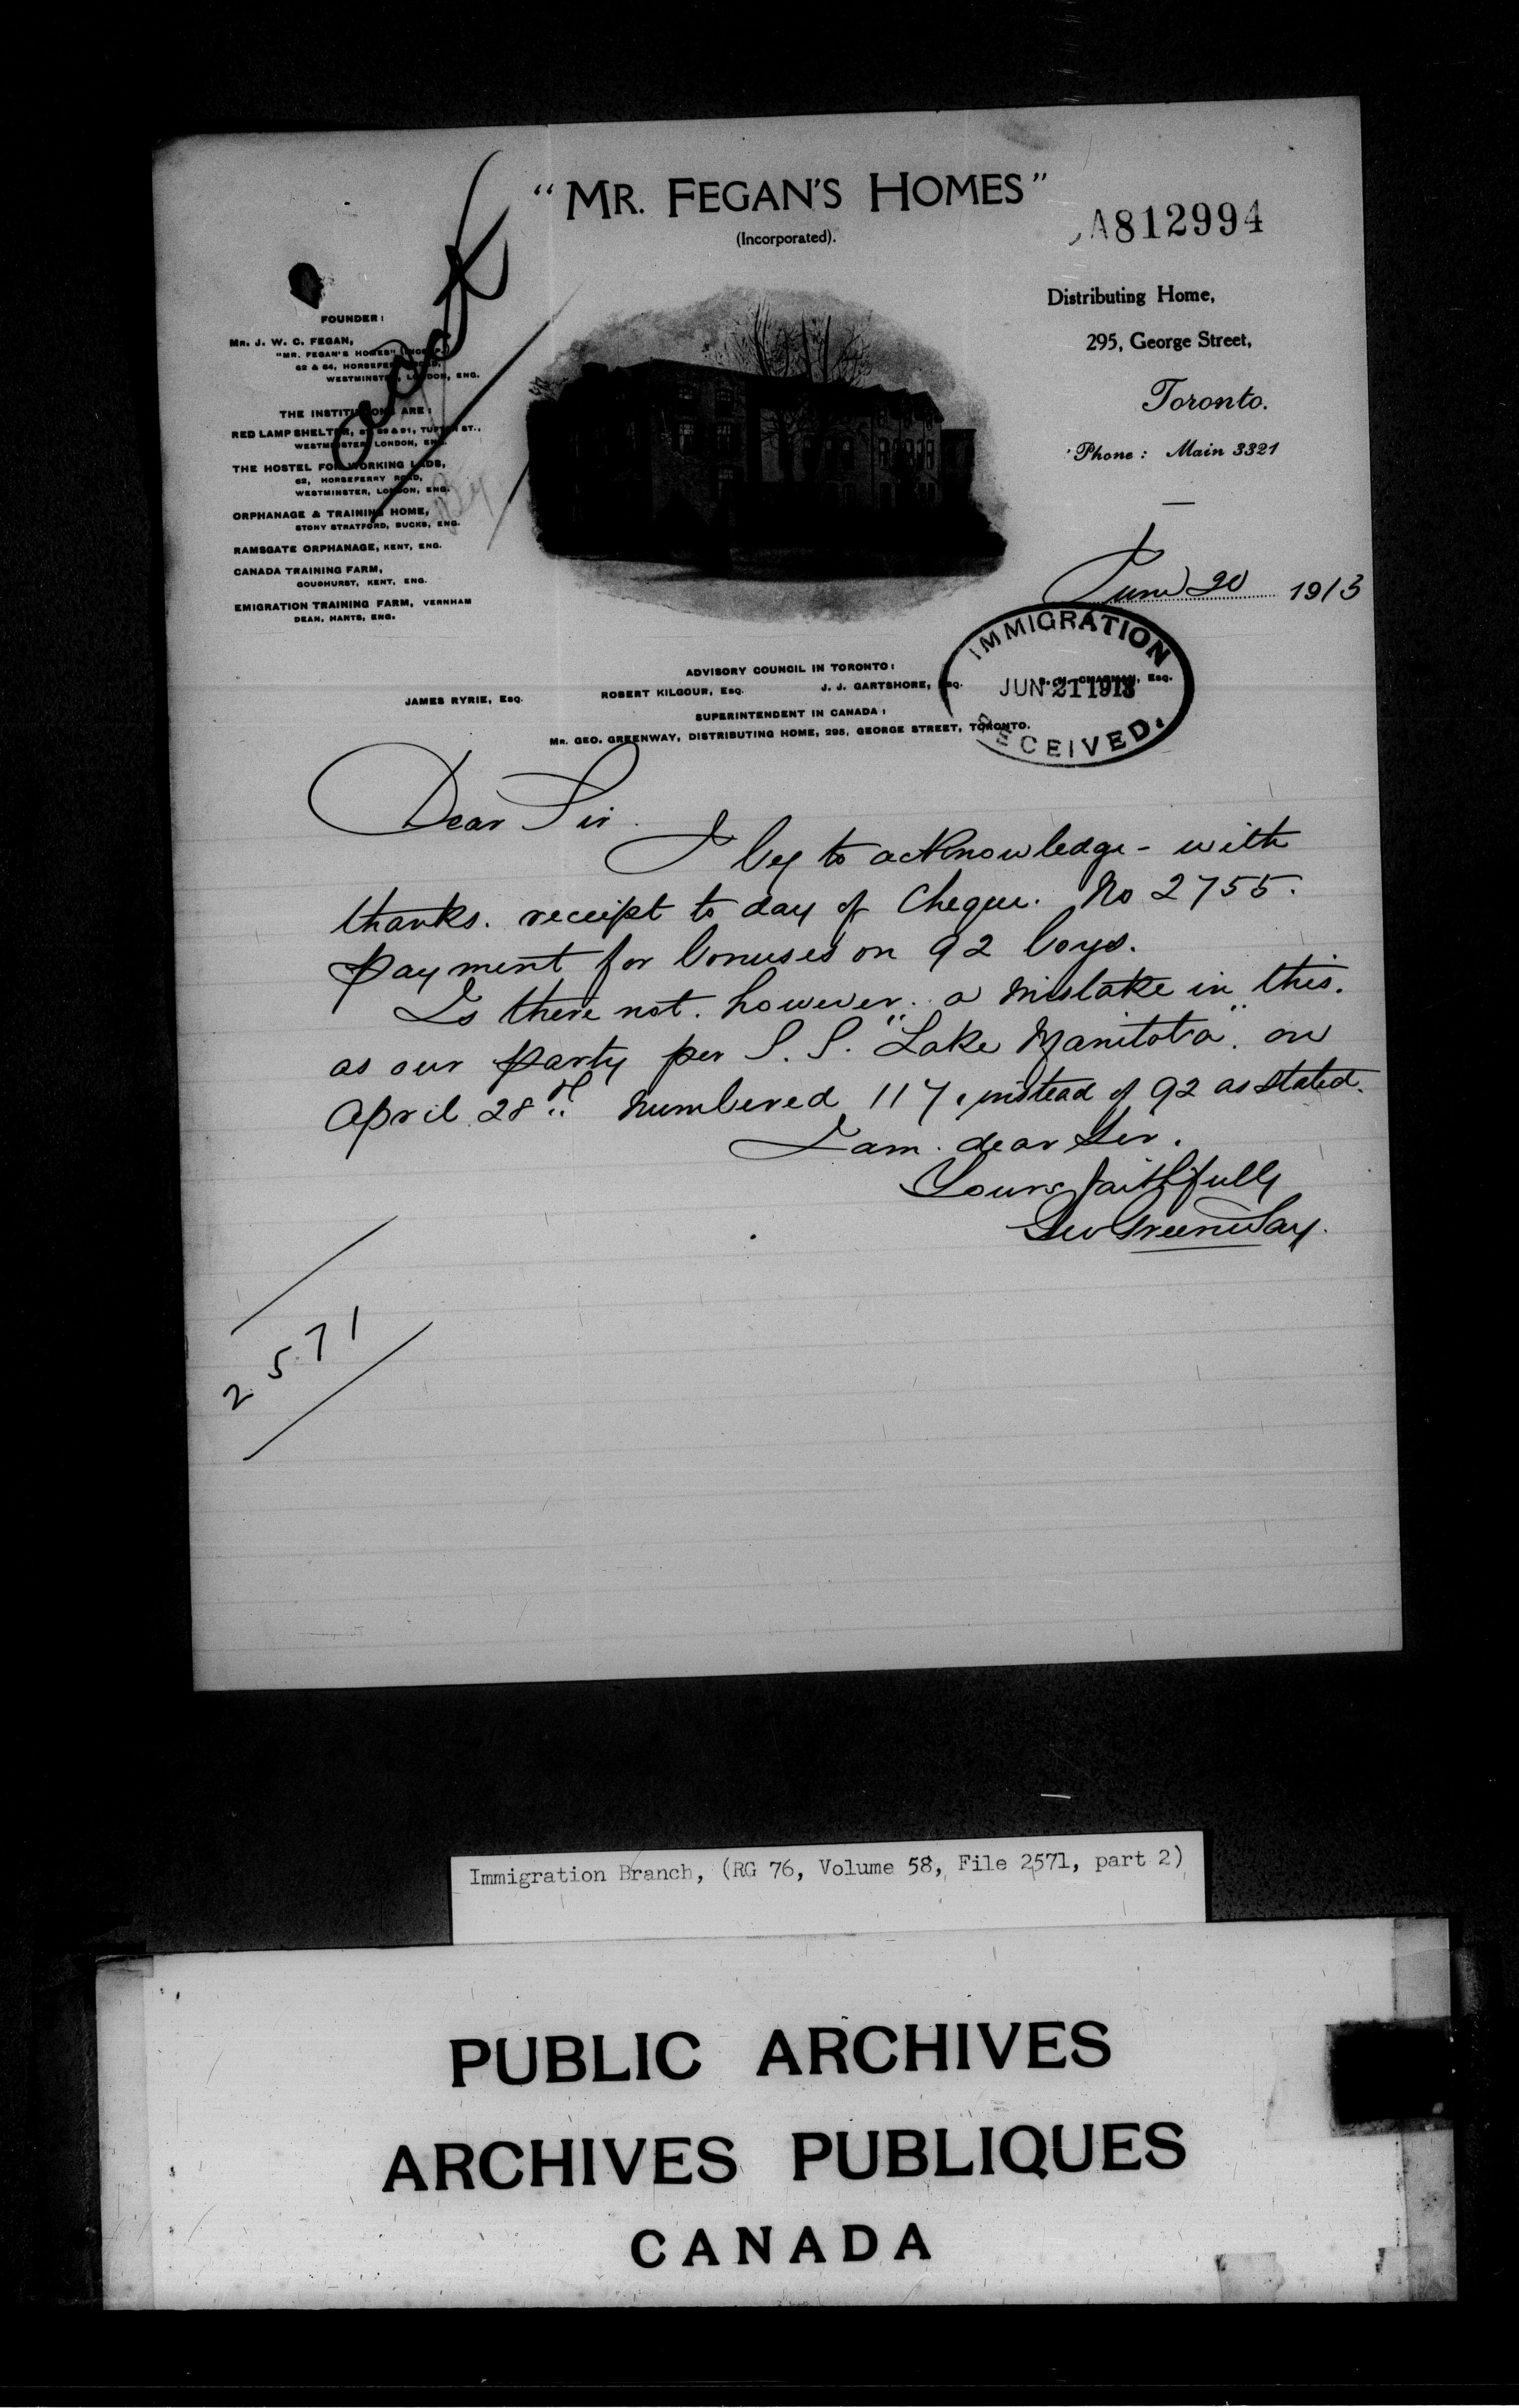 "MR. FEGAN'S HOMES"
(Incorporated).
A812994
Distributing Home,
295, George Street,
Toronto.
Phone: Main 3321
FOUNDER:
MR. J. W. C. FEGAN,
"MR. FEGAN'S HOMES" (INCORP.)
62 & 64, HORSEFERRY ROAD,
WESTMINSTER, LONDON, ENG.
THE INSTITUTIONS ARE:
RED LAMP SHELTER, 87, 89 & 91, TUFTON ST.,
WESTMINSTER, LONDON, ENG.
THE HOSTEL FOR WORKING LADS,
62, HORSEFERRY ROAD,
WESTMINSTER, LONDON, ENG.
ORPHANAGE & TRAINING HOME,
STONY STRATFORD, BUCKS, ENG.
RAMSGATE ORPHANAGE, KENT, ENG.
CANADA TRAINING FARM,
GOUDHURST, KENT, ENG.
EMIGRATION TRAINING FARM, VERNHAM
DEAN, HANTS, ENG.
June 20 1913
IMMIGRATION
JUN 21 1913
RECEIVED.
ADVISORY COUNCIL IN TORONTO:
JAMES RYRIE, ESQ. ROBERT KILGOUR, ESQ. J. J. GARTSHORE, ESQ. ESQ.
SUPERINTENDENT IN CANADA:
MR. GEO. GREENWAY, DISTRIBUTING HOME, 295, GEORGE STREET, TORONTO.
Dear Sir.
I beg to acknowledge - with
thanks. receipt to day of Cheque. No 2755.
payment for bonuses on 92 boys.
Is there not. however. a mistake in this.
as our party per S. S. "Lake Manitoba". on
April 28th numbered 117. instead of 92 as stated.
I am. dear Sir.
Yours faithfully
Geo Greenway.
2571
Immigration Branch, (RG 76, Volume 58, File 2571, part 2)
PUBLIC ARCHIVES
ARCHIVES PUBLIQUES
CANADA